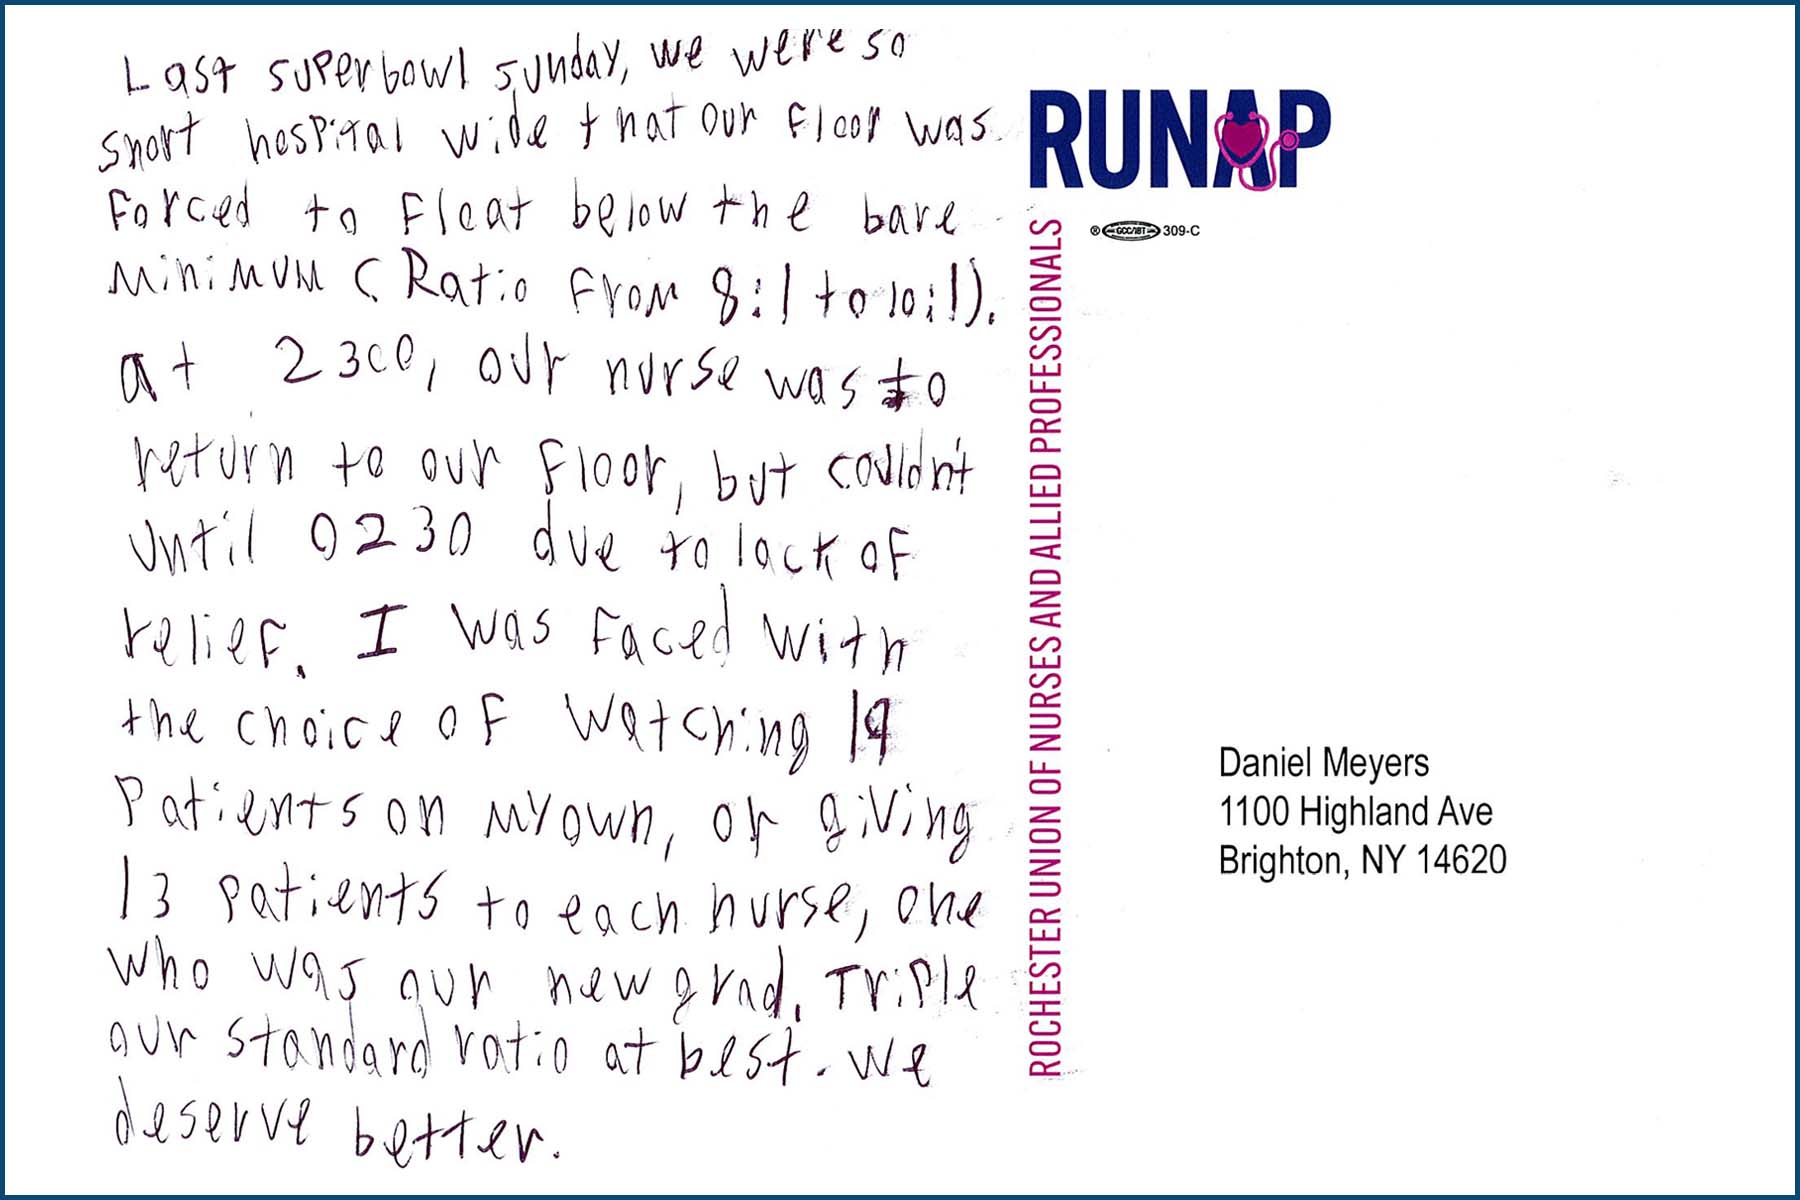 Last superbowl sunday, we were so
short hospital wide that our floor was
forced to float below the bare
minimum (Ratio from 8:1 to 10:1).
at 2300, our nurse was to
return to our floor, but couldn't
until 0230 due to lack of
relief. I was faced with
the choice of watching 19
patients on my own, or giving
13 patients to each nurse, one
who was our new grad. Triple
our standard ratio at best. We
deserve better.
RUNAP
® GCC/IBT 309-C
ROCHESTER UNION OF NURSES AND ALLIED PROFESSIONALS
Daniel Meyers
1100 Highland Ave
Brighton, NY 14620